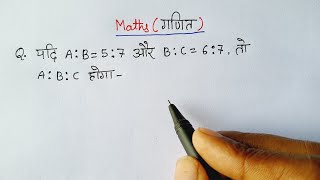 Maths (गणित)
Q. यदि A:B=5:7 और B:C=6:7, तो
A:B:C होगा-